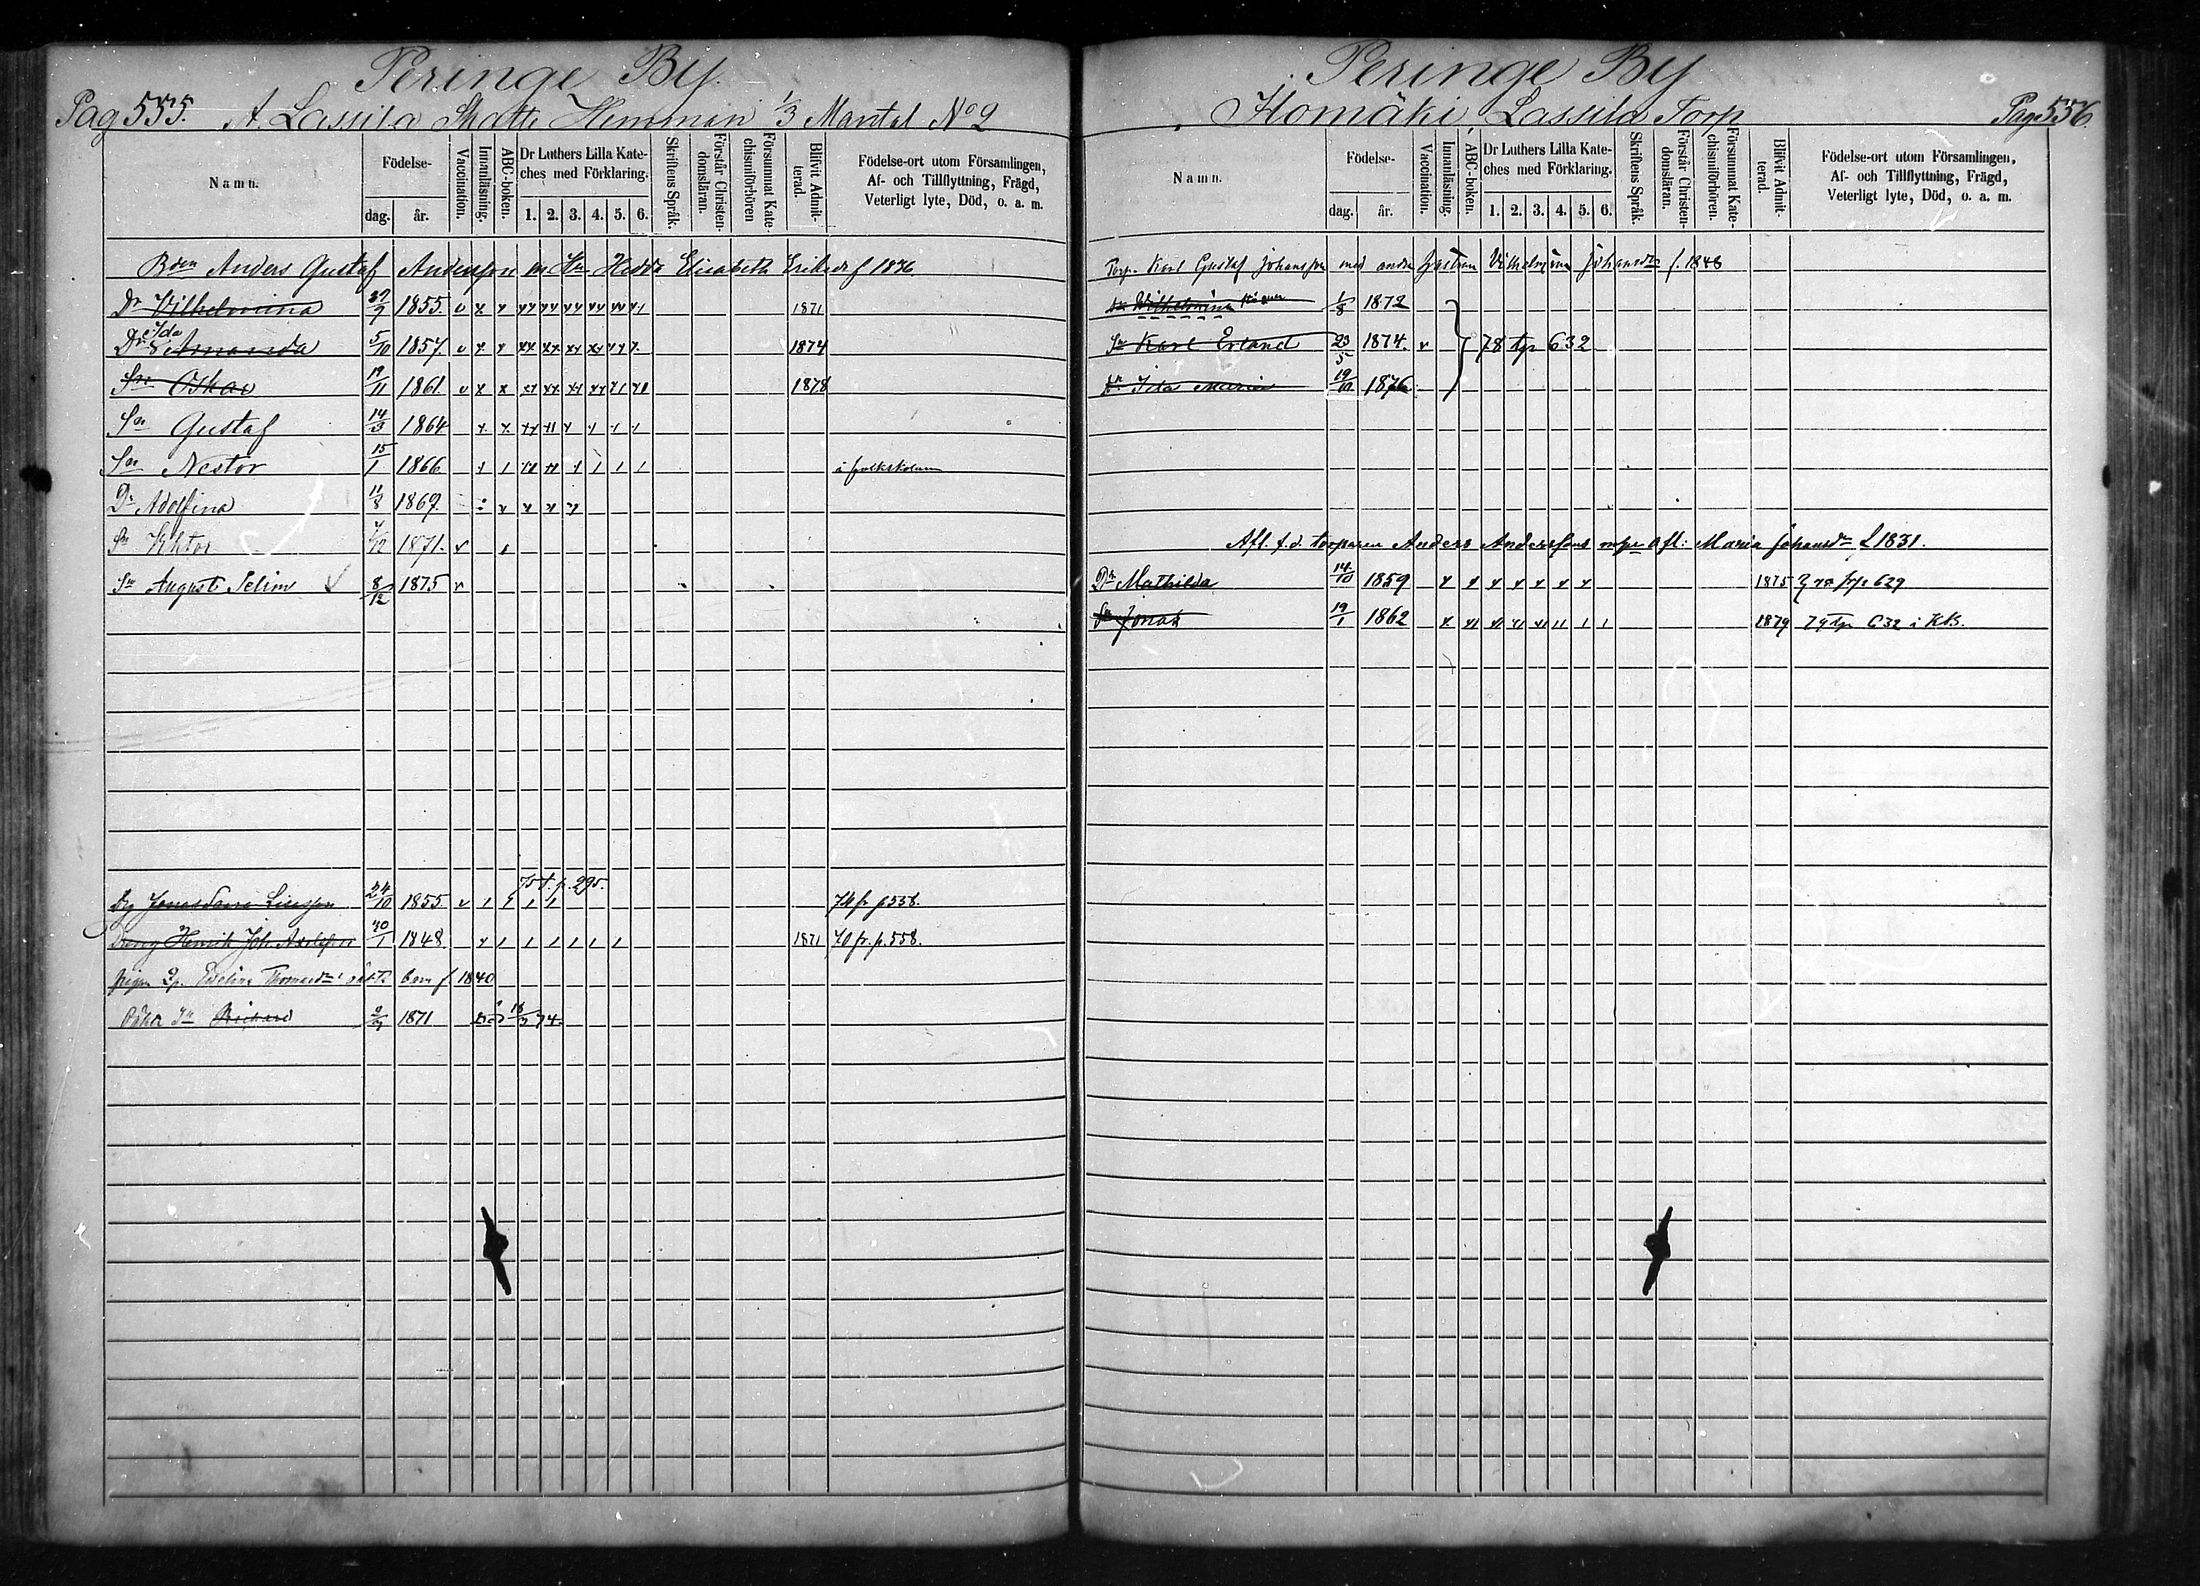 Peringe By.
Pag 555. A. Lassila Skatte Hemman 1/3 Mantal No 2
Namn. Födelse- dag. år. Vaccination. Innanläsning. ABC-boken. Dr Luthers Lilla Kateches med Förklaring. 1. 2. 3. 4. 5. 6. Skriftens Språk. Förstår Christendomsläran. Försummat Katechismiförhören Blifvit Admitterad. Födelse-ort utom Församlingen, Af- och Tillflyttning, Frägd, Veterligt lyte, Död, o. a. m.
Bden Anders Gustaf Andersson m Hu Hedda Elisabeth Eriksdr f 1836
Dr Vilhelmina 1855. v x x 1871
Dr Ida Amanda 5/10 1857. v x x 1874
Sn Oskar 19/11 1861. v x x 1878
Sn Gustaf 14/3 1864
Sn Nestor 15/1 1866 i folkskolan
Dr Adolfina 11/8 1869.
Sn Viktor 1871. v
Sn August Selim 8/12 1875 v
p. 295.
Dg Jonas 24/10 1855 v 74 fr p 558.
Dreng Henrik Joh 1848 1871 70 fr. p. 558.
pigan Evelina Thomasdr barn f. 1840
Oäkta Sn Richard 1871 74.
Peringe By
Homäki Lassila Torp Pag 556.
Namn. Födelse- dag. år. Vaccination. Innanläsning. ABC-boken. Dr Luthers Lilla Kateches med Förklaring. 1. 2. 3. 4. 5. 6. Skriftens Språk. Förstår Christendomsläran. Försummat Katechismiförhören. Blifvit Admitterad. Födelse-ort utom Församlingen, Af- och Tillflyttning, Frägd, Veterligt lyte, Död, o. a. m.
Torp. Karl Gustaf Johansson med andra hustrun Vilhelmina Johansdr f. 1848
Wilhelmina 1/8 1872
Sn Karl Erland 23/5 1874. v 78 tp 632
Dr Ida Maria 19/10 1876
Afl. f.d. torparen Anders Anderssons afl: Maria Johansdr f 1831.
Dr Mathilda 14/10 1859 1875 629
Sn Jonas 19/1 1862 1879 79 tp 632 i KB.